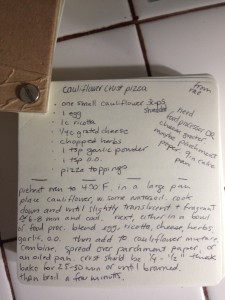 cauliflower crust pizza
from
• one small cauliflower
• 1 egg
• ricotta
• 1/4c grated cheese
• chopped herbs
• 1 tsp garlic powder
• 1 tsp o.o.
• pizza toppings
need
food processor OR
cheese grater
maybe parchment
paper
cake
pan
preheat oven to 450 F. in a large pan
place cauliflower, w some water. cook
down until slightly translucent + fragrant
and cool. next, either in a bowl
or food proc. blend egg, ricotta, cheese, herbs,
garlic, o.o. then add to cauliflower mixture
combine, spread over parchment paper, or
an oiled pan. crust should be 1/4 - 1/2" thick
bake for 25-30 min or until browned.
then broil a few minutes.